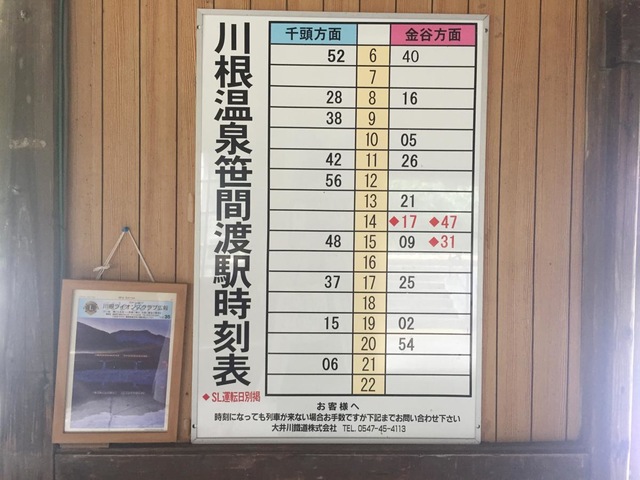 川根温泉笹間渡駅時刻表
千頭方面 金谷方面
52 6 40
7
28 8 16
38 9
10 05
42 11 26
56 12
13 21
14 ◆17 ◆47
48 15 09 ◆31
16
37 17 25
18
15 19 02
20 54
06 21
22
◆SL運転日別掲
お客様へ
時刻になっても列車が来ない場合お手数ですが下記までお問い合わせ下さい
大井川鐵道株式会社 TEL. 0547-45-4113
川根ライオンズクラブ会報